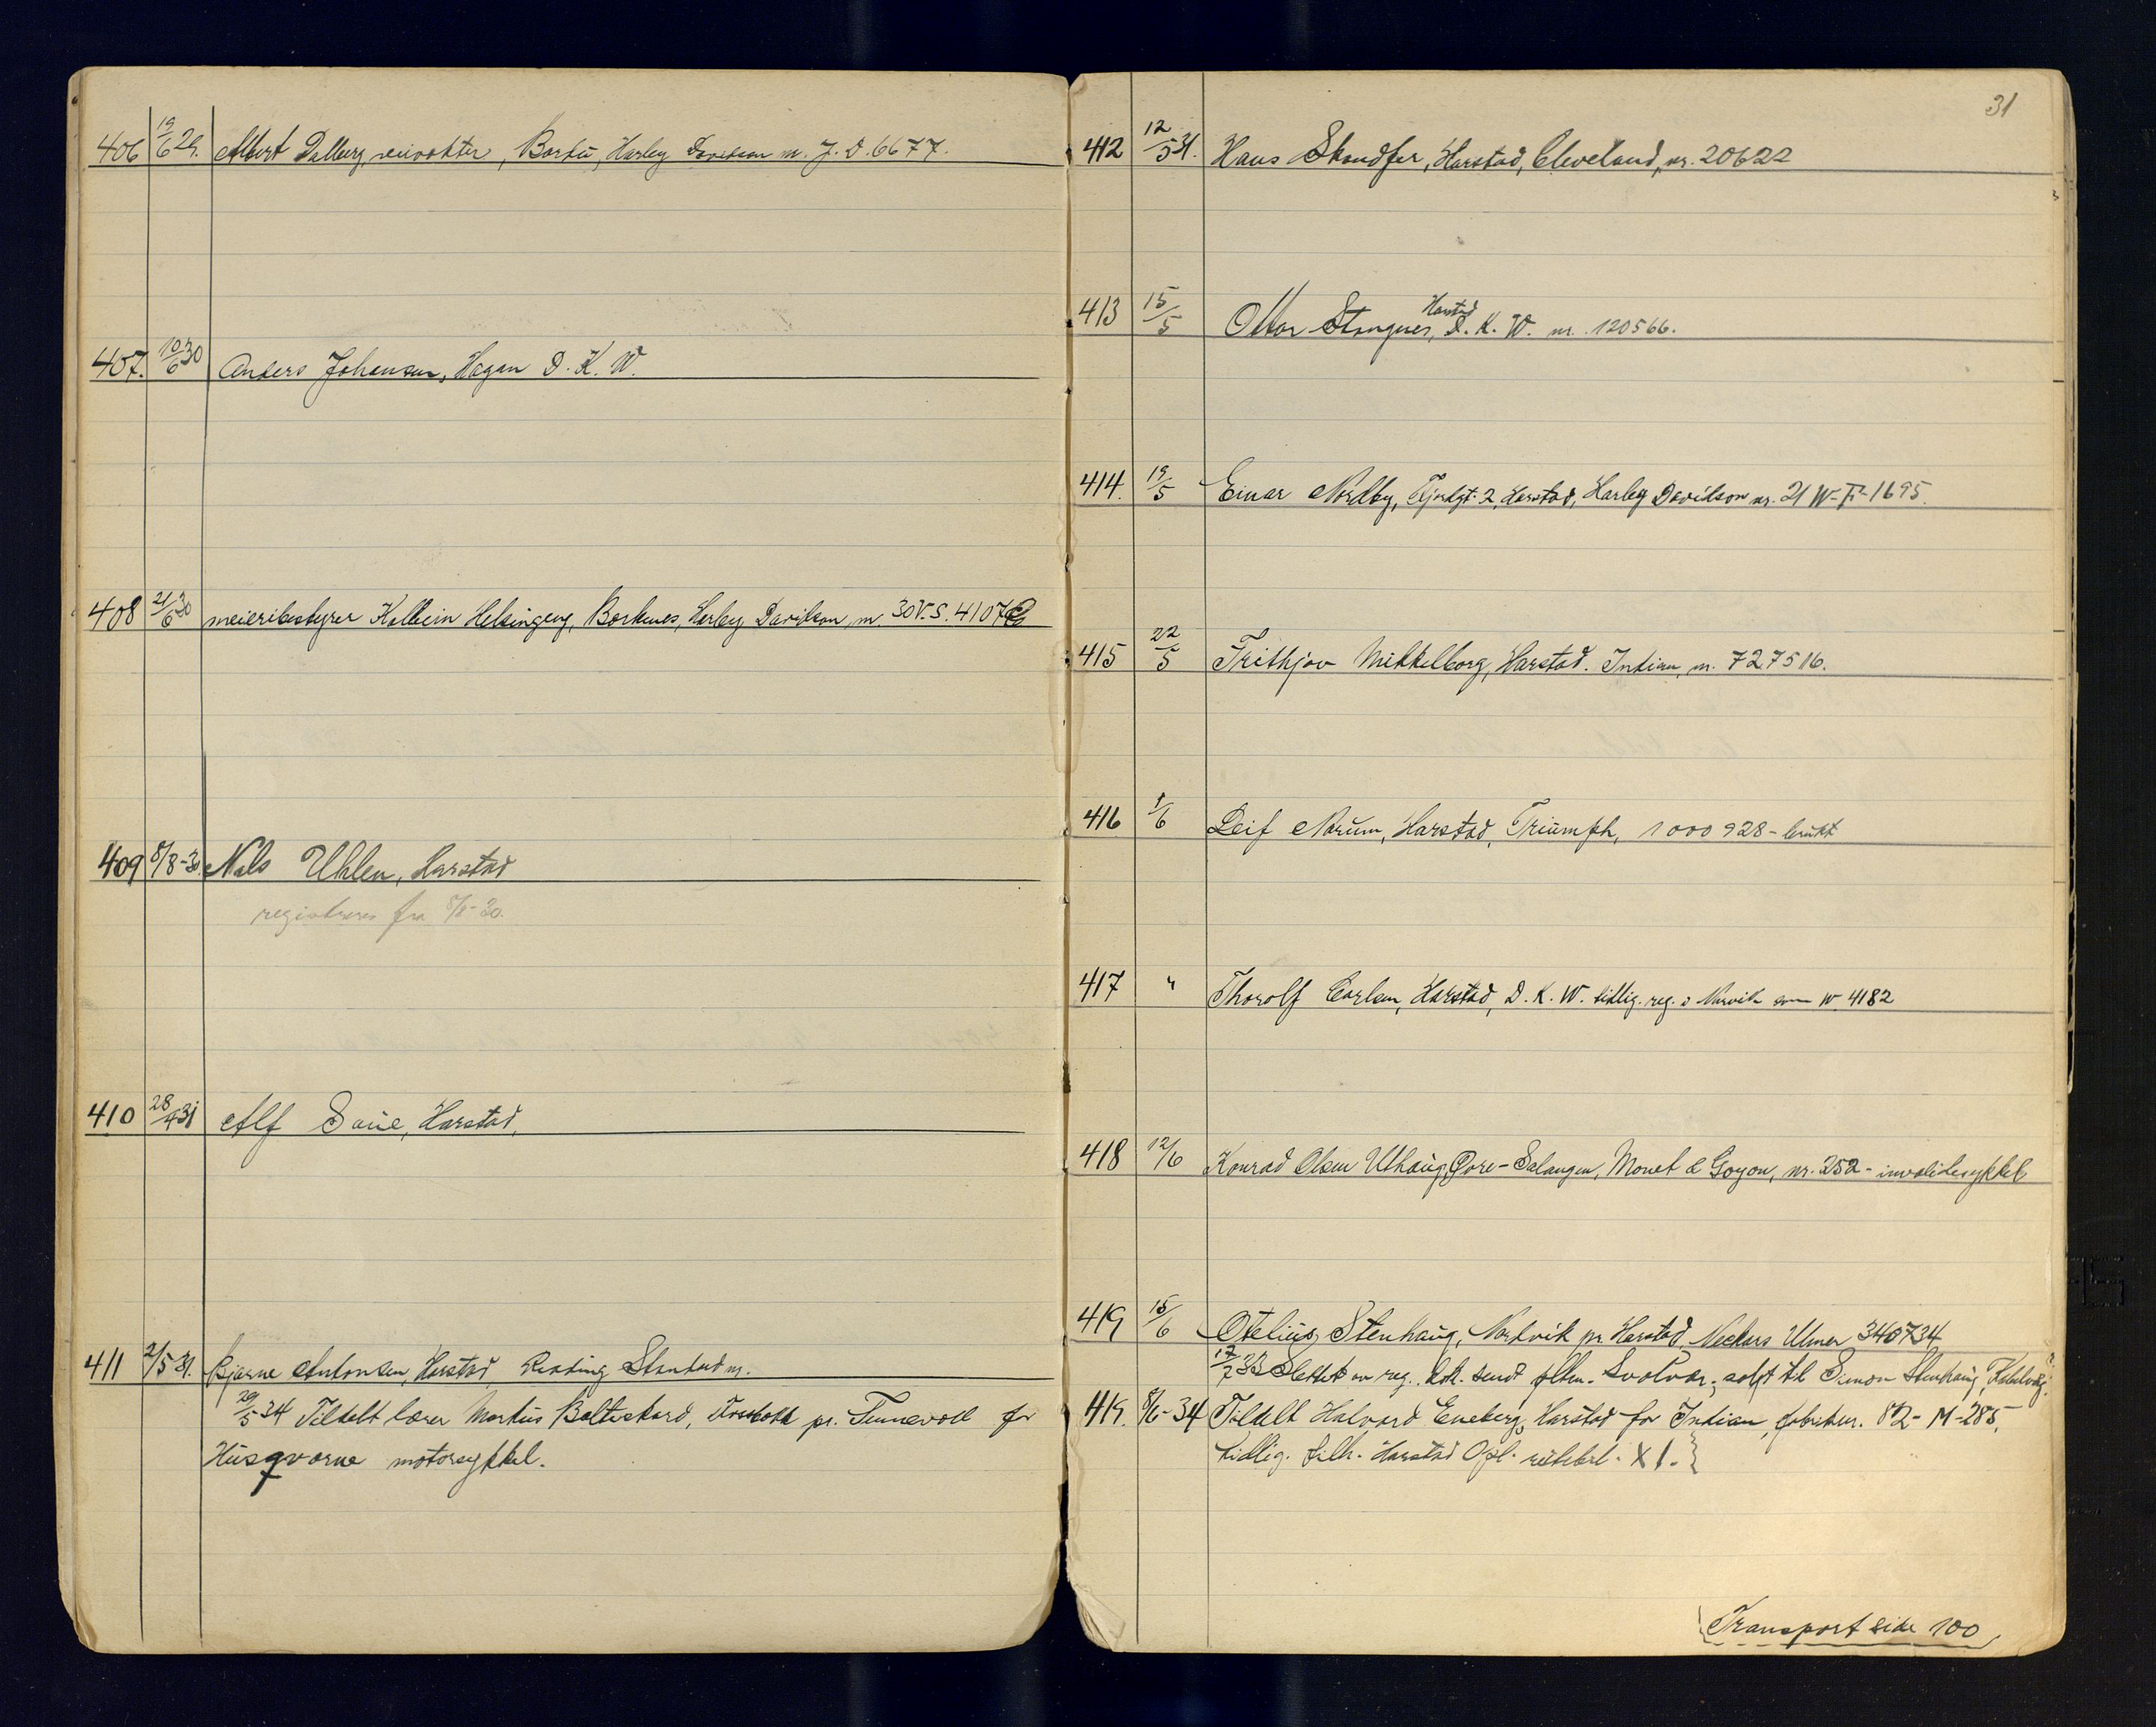 406 19/6 29. Albert Dalberg, veivokter, Bardu, Harley Davidson nr. J. D. 6677.
407. 10/6 30 Anders Johansen, Hagan D. K. W.
408 21/6 30 meieribestyrer Kolbein Helsingeng, Borkenes, Harley Davidson, nr. 30 V. S. 4107
409 8/8-30. Nils Uhlen, Harstad
registreres fra 8/8-30.
410 28/4 31 Alf Saue, Harstad,
411 2/5 31. Bjarne Antonsen, Harstad, Reading Standard nr.
29/5 34 Tildelt lærer Markus Boltåskard, pr. Tennevoll for
Husqvarne motorsykkel.
31
412 12/5 31. Hans Skandfer, Harstad, Cleveland, nr. 20622
Harstad
413 15/5 Ottar Stangnes, D. K. W. nr. 120566.
414. 19/5 Einar Nordby, Fjordgt. 2, Harstad, Harley Davidson nr. 21 W-F-1695.
415 22/5 Frithjov Mikkelborg, Harstad. Indian, nr. 727516.
416 1/6 Leif Norum, Harstad, Triumph, 1000928 - brukt
417 " Thorolf Carlsen, Harstad, D. K. W. tidlig. reg. i Narvik som W 4182
418 12/6 Konrad Olsen Uthaug, Øvre-Salangen, Monet & Goyon, nr. 252 - invalidesykkel
419 15/6 Otelius Stenhaug, Nordvik pr. Harstad, Neckars Ulmer 340734
17/7 33 Slettet av reg. dok. sendt pltm. Svolvær, solgt til Simon Stenhaug, Kabelvåg.
419. 8/6-34 Tildelt Halvard Eneberg, Harstad for Indian, fabriknr. 82-M-285,
tidlig. tilh. Harstad Opl. rutebil. X 1. }
Transport side 100